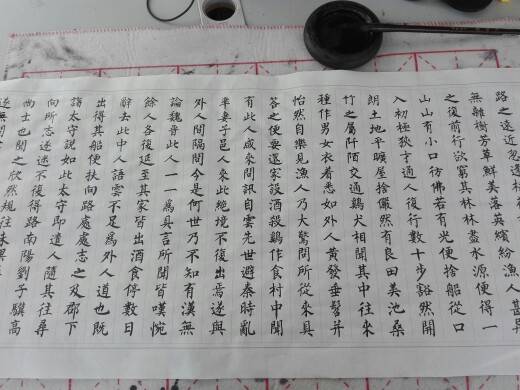 路之遠近忽逢桃
無雜樹芳草鮮美落英繽紛漁人甚異
之復前行欲窮其林林盡水源便得一
山山有小口彷佛若有光便捨船從口
入初極狹才通人復行數十步豁然開
朗土地平曠屋捨儼然有良田美池桑
竹之屬阡陌交通鷄犬相聞其中往來
種作男女衣着悉如外人黃發垂髫并
怡然自樂見漁人乃大驚問所從來具
答之便要還家設酒殺鷄作食村中聞
有此人咸來問訊自雲先世避秦時亂
率妻子邑人來此絕境不復出焉遂與
外人間隔問今是何世乃不知有漢無
論魏晉此人一一為具言所聞皆嘆惋
餘人各復延至其家皆出酒食停數日
辭去此中人語雲不足為外人道也既
出得其船便扶向路處處志之及郡下
詣太守說如此太守即遣人隨其往尋
向所志遂迷不復得路南陽劉子驥高
尚士也聞之欣然規往未果
遂無問